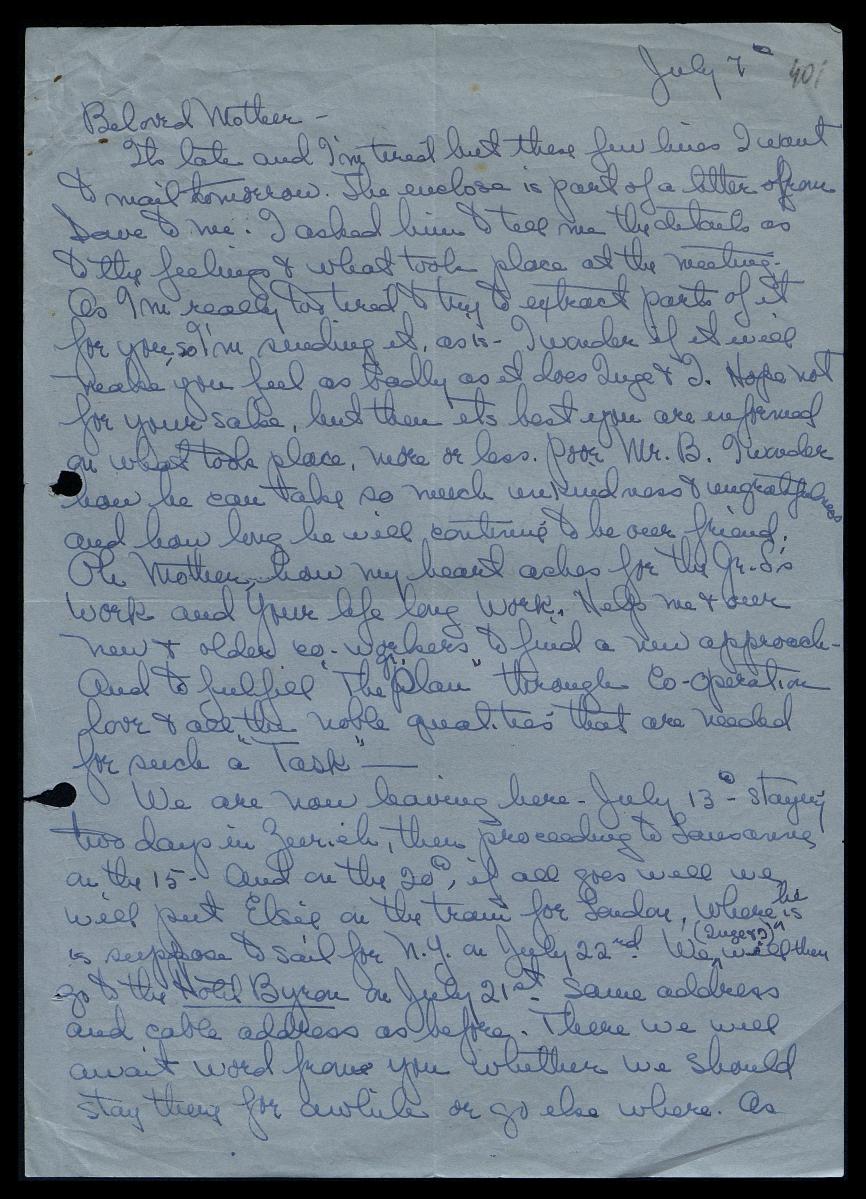 July 7th 401
Beloved Mother -
Its late and I'm tired but these few lines I want
to mail tomorrow. The enclose is part of a letter from
Dave to me. I asked him to tell me the details as
to the feelings & what took place at the meeting.
As I'm really too tired to try to extract parts of it
for you, so I'm sending it, as is - I wonder if it will
make you feel as badly as it does Inge & I. Hope not
for your sake, but then its best you are informed
on what took place, more or less. Poor Mr. B. I wonder
how he can take so much unkindness & ungratefulness
and how long he will continue to be our friend.
Oh Mother, how my heart aches for the Gr. S's
Work and Your life long Work. Help me & our
new & older co-workers to find a new approach -
And to fulfill "The Plan" through Co-operation
love & all the noble qualities that are needed
for such a "Task" —
We are now leaving here - July 13th - staying
two days in Zurich, then proceeding to Lausanne
on the 15 - And on the 20th, if all goes well we
will put Elsie on the train for London, where she
is suppose to sail for N.Y. on July 22nd. We (Inge & I) will then
go to the Hotel Byron on July 21st - Same address
and cable address as before. There we will
await word from you whether we should
stay there for awhile or go else where. As